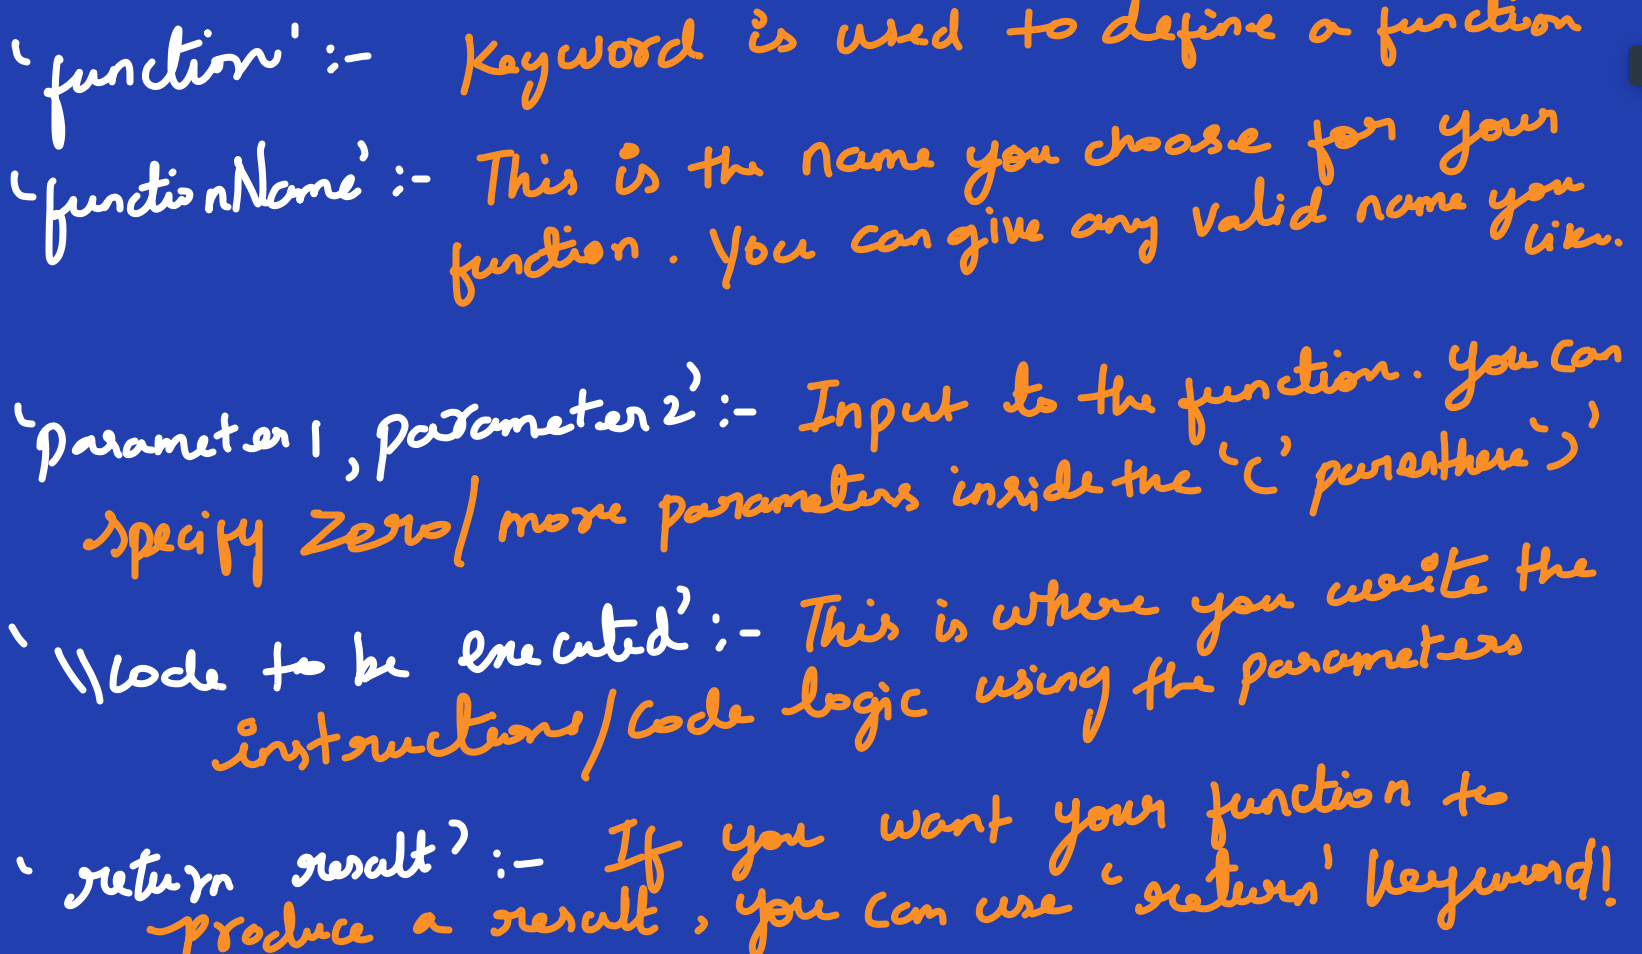 'function' :- Keyword is used to define a function
'functionName' :- This is the name you choose for your
function. You can give any valid name you
like.
'parameter1, parameter2' :- Input to the function. You can
specify zero/more parameters inside the '(' parenthese ')'
'\\code to be executed' :- This is where you write the
instructions/code logic using the parameters
'return result' :- If you want your function to
produce a result, you can use 'return' keyword!